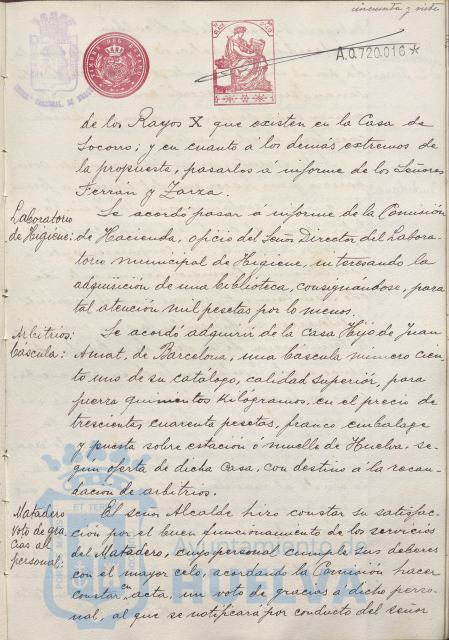 cincuenta y siete
TIMBRE DEL ESTADO
A.0.720.016*
de los Rayos X que existen en la Casa de
Socorro; y en cuanto á los demás extremos de
la propuesta, pasarlos á informe de los Señores
Terrán y Zarza.
Laboratorio
de Higiene:
Se acordó pasar á informe de la Comisión
de Hacienda, oficio del Señor Director del Labora-
torio municipal de Higiene, interesando la
adquisición de una biblioteca, consignándose, para
tal atención mil pesetas por lo menos.
Arbitrios:
báscula:
Se acordó adquirir de la Casa Hijo de Juan
Amat, de Barcelona, una báscula número cien-
to uno de su catálogo, calidad superior, para
fuerza quinientos Kilogramos, en el precio de
trescientas cuarenta pesetas, franco embalage
y puesta sobre estación ó muelle de Huelva, se-
gún oferta de dicha Casa, con destino á la recau-
dación de arbitrios.
Matadero
voto de gra-
cias al
personal:
El señor Alcalde hizo constar su satisfac-
ción por el buen funcionamiento de los servicios
del Matadero, cuyo personal cumple sus deberes
con el mayor celo, acordando la Comisión hacer
constar en acta, un voto de gracias á dicho perso-
nal, al que se notificará por conducto del señor
Ayuntamiento
HUELVA